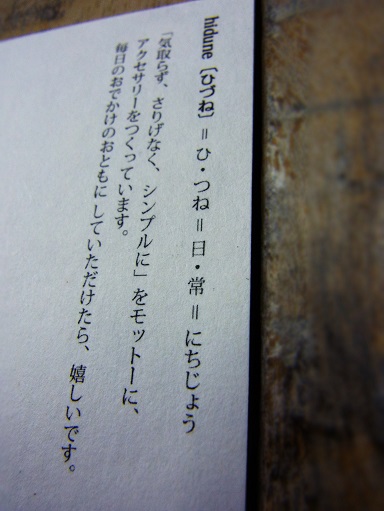 hidune〔ひづね〕＝ひ・つね＝日・常＝にちじょう
「気取らず、さりげなく、シンプルに」をモットーに、
アクセサリーをつくっています。
毎日のおでかけのおともにしていただけたら、嬉しいです。